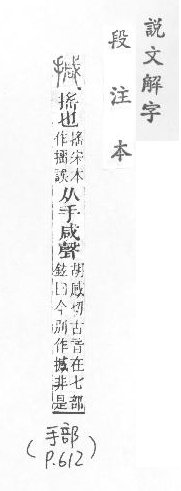 説文解字
段注本
㨔 搖也 搖宋本作誤 从手咸聲 胡感切古音在七部鉉曰今別作撼非是
(手部 P.612)